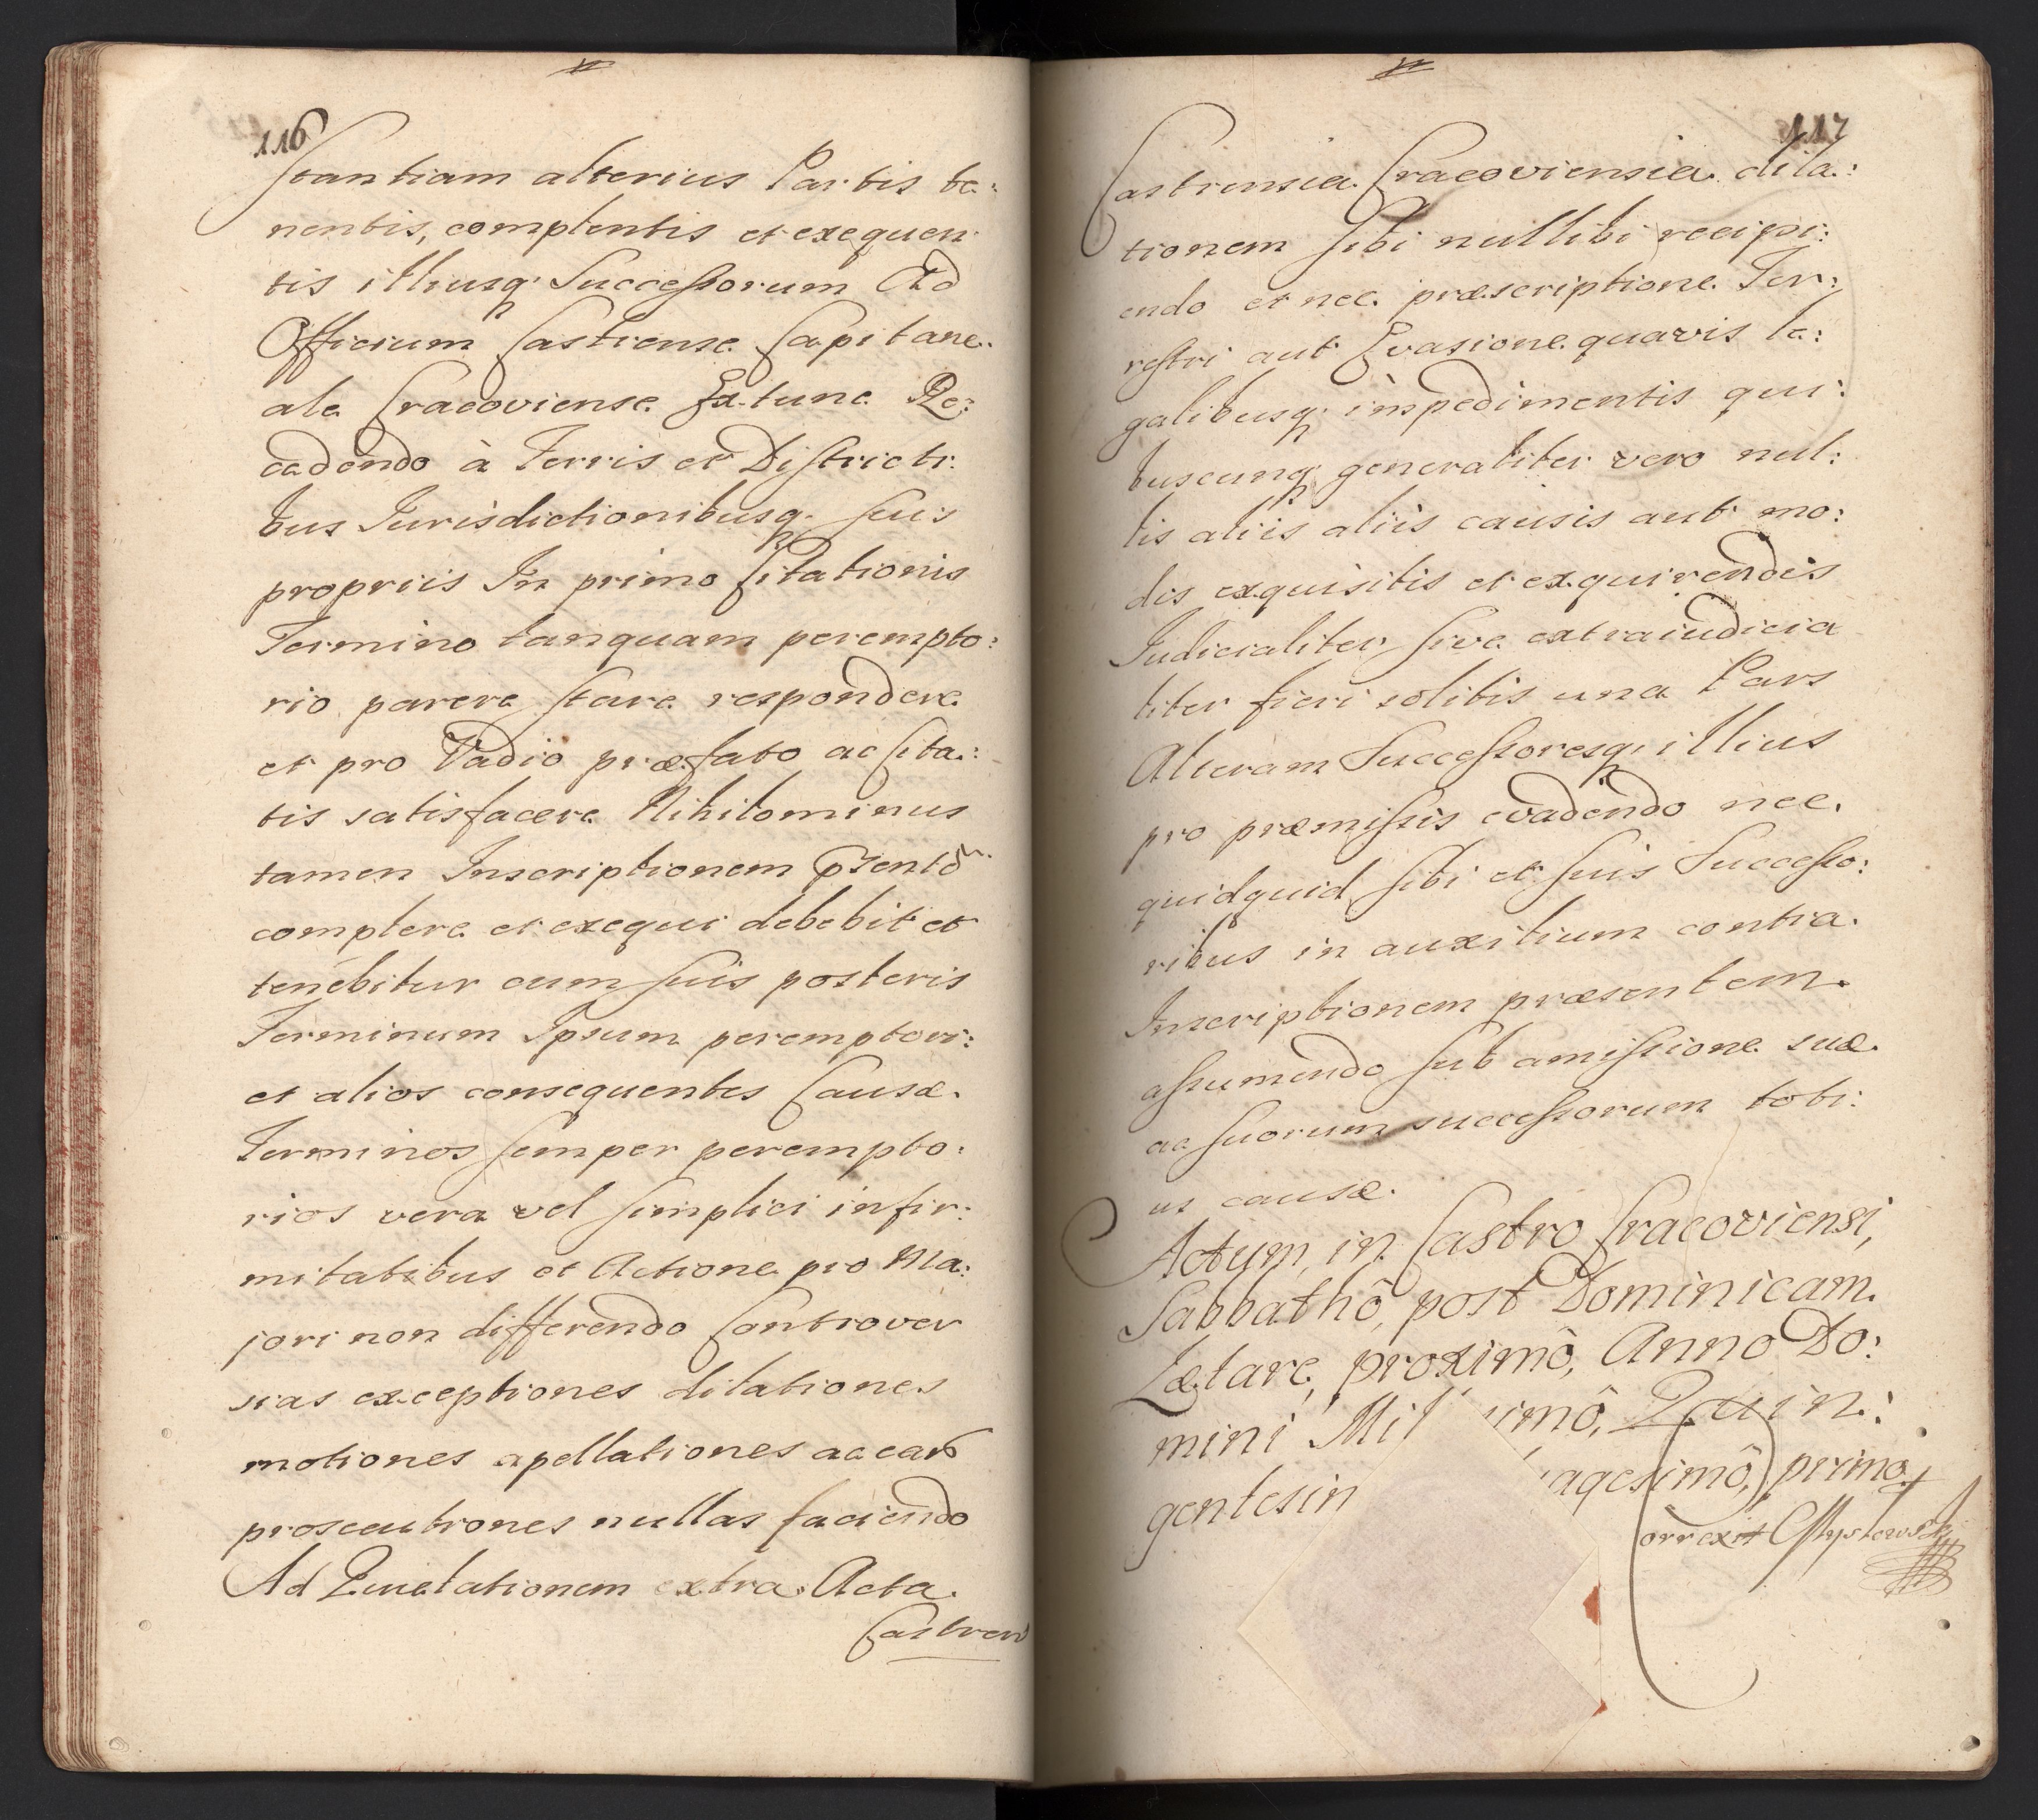 116
stantiam alterius Partis te:
nentis, complentis et exequen
tis illiusq; Successorum Ad
Officium Castrense Capitane
ale Cracoviense Ex tunc Re:
cadendo à Terris et Districti
bus Jurisdictionibusq; suis
propriis In primo Citationis
Termino tanquam perempto:
rio parere stare respondere
et pro Vadio præfato ac Cita:
tis satisfacere Nihilominus
tamen Inscriptionem
complere et exequi debebit et
tenebitur cum suis posteris
Terminum Ipsum peremptori:
et alios consequentes Causæ
Terminos semper perempto:
rios vera vel simplici infir:
mitatibus et Actione pro Ma:
jori non differendo Controver
sias exceptiones dilationes
motiones apellationes ac ear
prosecutiones nullas faciendo
Ad Evietationem extra Acta
Castren
117
Castrensia Cracoviensia dila:
tionem sibi nullibi recipi:
endo et nec præscriptione Ter:
restri aut Evasione quavis le:
galibusq; impedimentis qui:
buscunq; generaliter vero nul:
lis aliis aliis causis aut mo:
dis exquisitis et exquirendis
Judicialiter sive extraiudicia
liter fieri solitis una Pars
Alteram Successoresq; illius
pro præmissis evadendo nec
quidquid sibi et suis Successo:
ribus in auxilium contra
Inscriptionem præsentem
assumendo sub amissione suæ
ac suorum successorum toti:
us causæ.
Actum in Castro Cracoviensi,
Sabbathô, post Dominicam
Lætare, proximô, Anno Do:
mini Mil imô, Quin:
gentesim agesimô, primo
Correxit